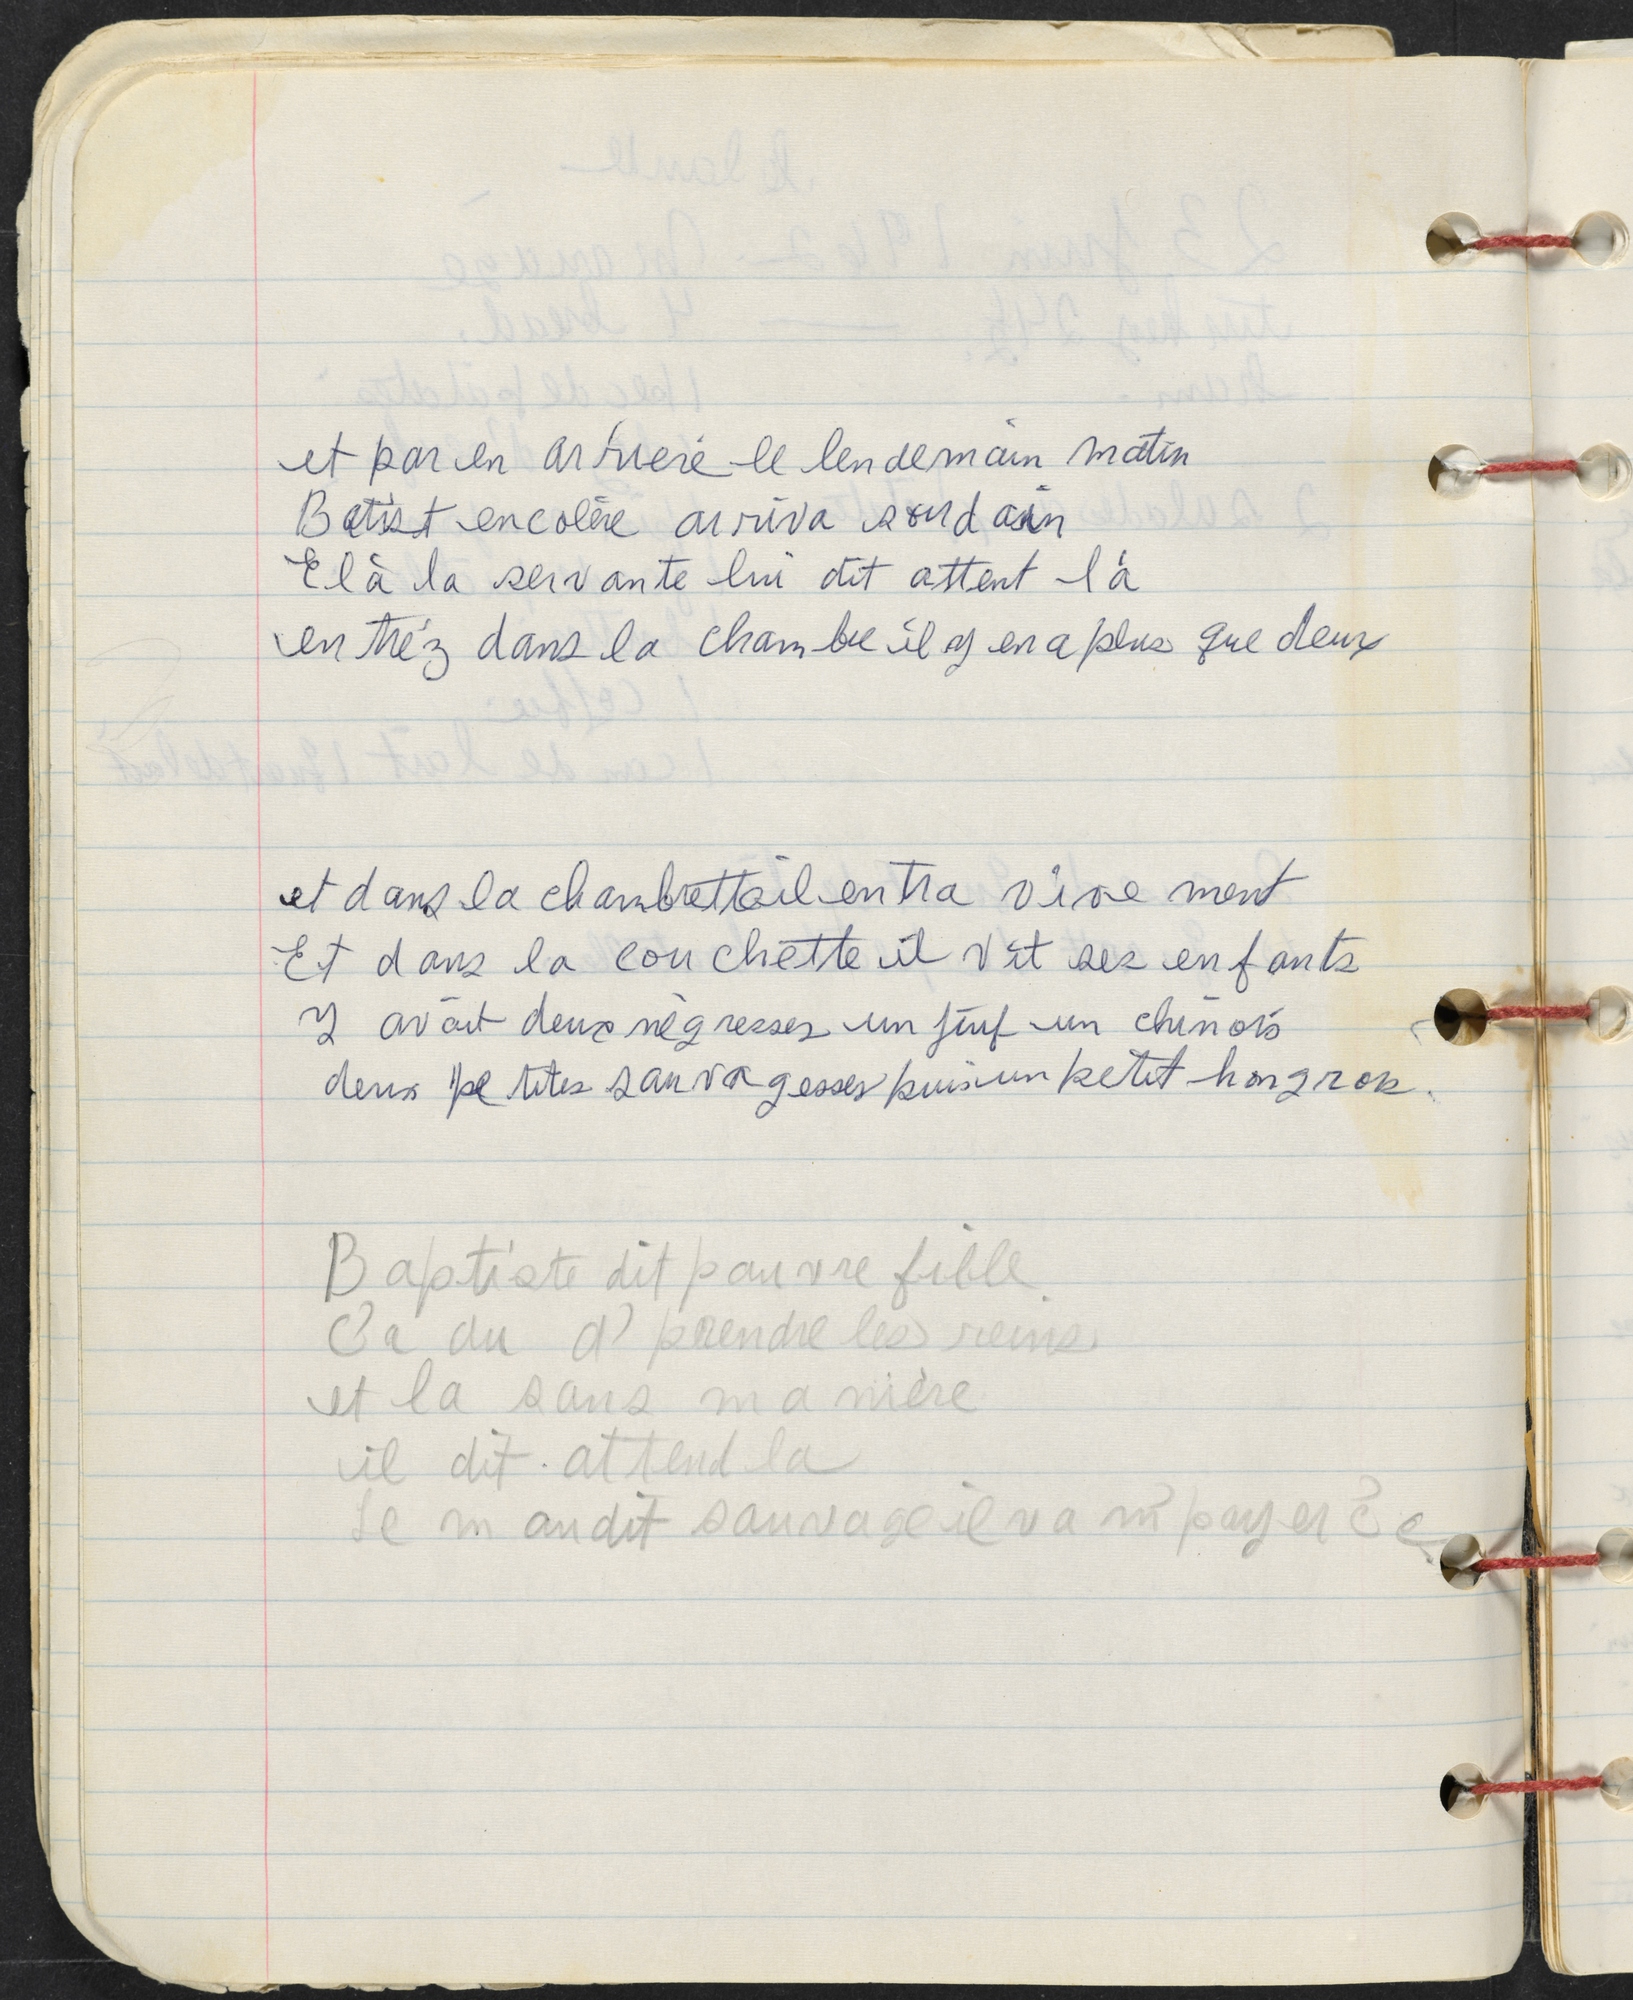 et par en arrieré le lendemain matin
Batist encolère arriva soudain
Et là la servante lui dit attent là
entréz dans la chambre il y en a plus que deux
et dans la chambrette il entra vivement
Et dans la couchette il vit ses enfants
Y avait deux nègresses un juif un chinois
deux petites sauvagesses puis un petit hongrois.
Baptiste dit pauvre fille
Ca du d' prendre les reins
et la sans manière
il dit. attend la
Le maudit sauvage il va m'payer